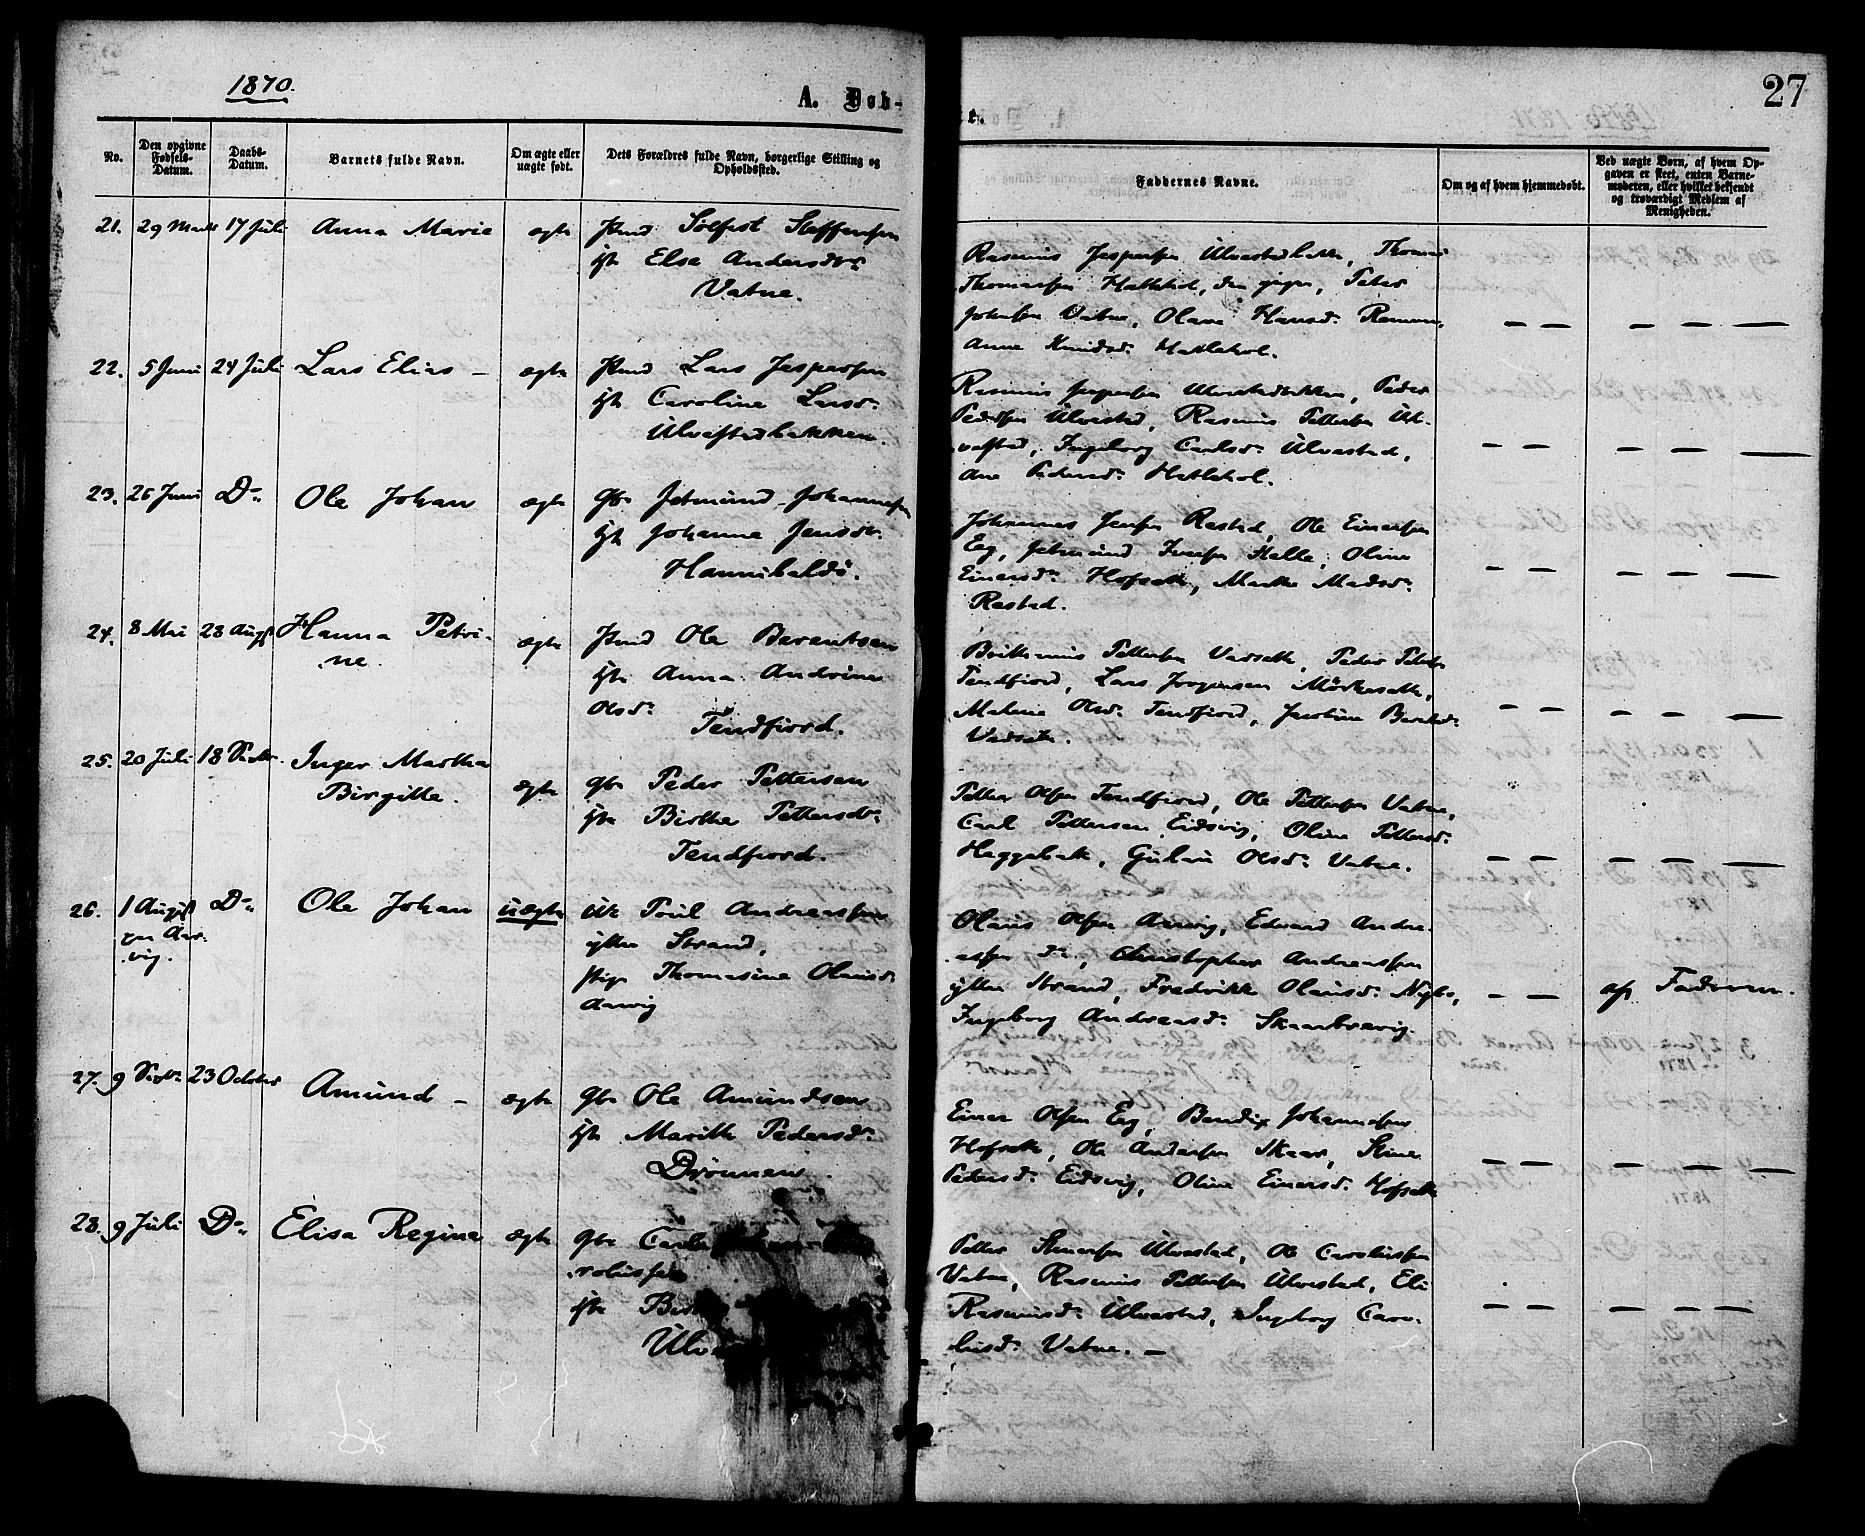 1870.
A. Døb-
te.
27
No.
Den opgivne Fødsels-Datum.
Daabs-Datum.
Barnets fulde Navn.
Om ægte eller uægte født.
Dets Forældres fulde Navn, borgerlige Stilling og Opholdssted.
Faddernes Navne.
Om og af hvem hjemmedøbt.
Ved uægte Børn, af hvem Op-
gaven er skeet, enten Barne-
moderen, eller hvilket bekjendt
og troværdigt Medlem af
Menigheden.
21. 29 Marts 17 Juli Anna Marie ægte Pmd Sølfest Steffensen
htr Elsa Andersdtr
Vatne.
Rasmus Jespersen Ulvestadbakk, Thomas
Thomassen Hatlehol, den yngre, Peter
Johnsen Vatne, Olave Hansdr
Anne Knudsdr Hatlehol.
22. 5 Juni 24 Juli Lars Elias – ægte Pmd Lars Jespersen
Caroline Larsdr
Ulvestadbakken.
Rasmus Jespersen Ulvestadbakken, Peder
Pedersen Ulvestad, Rasmus Pettersen Ul-
vestad, Ingeborg Carlsdr Ulvestad,
Ane Pedersdr Hatlehol.
23. 26 Juni Do Ole Johan ægte Gbr Jetmund Johannessen
Johanne Jensdr
Hannibaldø.
Johannes Jensen Restad, Ole Einersen
Eeg, Jetmund Iversen Halle, Oline
Einersdr Hofseth, Marthe Madsdr
Restad.
24. 8 Mai 28 August Hanna Petri-
ne. ægte Pmd Ole Berentsen
Anna Andrine
Olsdr
Tendfjord.
Pettersen Vadseth, Peder Peters
Tendfjord, Lars Jørgensen Mørkeseth,
Malene Olsdr Tendfjord, Jacobine Berntsdr
Vadseth.
25. 20 Juli 18 Septbr. Inger Martha
Birgitte. ægte Gbr Peder Pettersen
Birthe Pettersdr
Tendfjord.
Petter Olsen Tendfjord, Ole Pettersen Vatne,
Carl Pettersen Eidsvig, Oline Pettersdr
Heggebak, Olsdr Vatne.
26. 1 August
paa Aar-
vig. Do Ole Johan uægte Poul Andreassen
yttre Strand,
pige Thomasine Olausdr
Aarvig
Olaus Olsen Aarvig, Edvard Andre-
assen Do, Christopher Andreassen
yttre Strand, Fredrikke Olausdr
Ingeborg Andreasdr
af Faderen.
27. 9 Septbr 23 October Amund – ægte Gbr Ole Amundsen
Marith Pedersdr
Drønnen.
Einer Olsen Eeg, Bendix Johannessen
Hofseth, Ole Andersen Skaar, Stine
Pedersdr Eidsvig, Oline Einersdr Hofseth
28. 9 Juli Do Elisa Regine ægte Gbr
rolussen
Petter Steinersen Ulvestad, Ole Carolussen
Vatne, Rasmus Pettersen Ulvestad, Eli
Rasmusdr Ulvestad, Ingeborg Caro-
lusdr Vatne. –